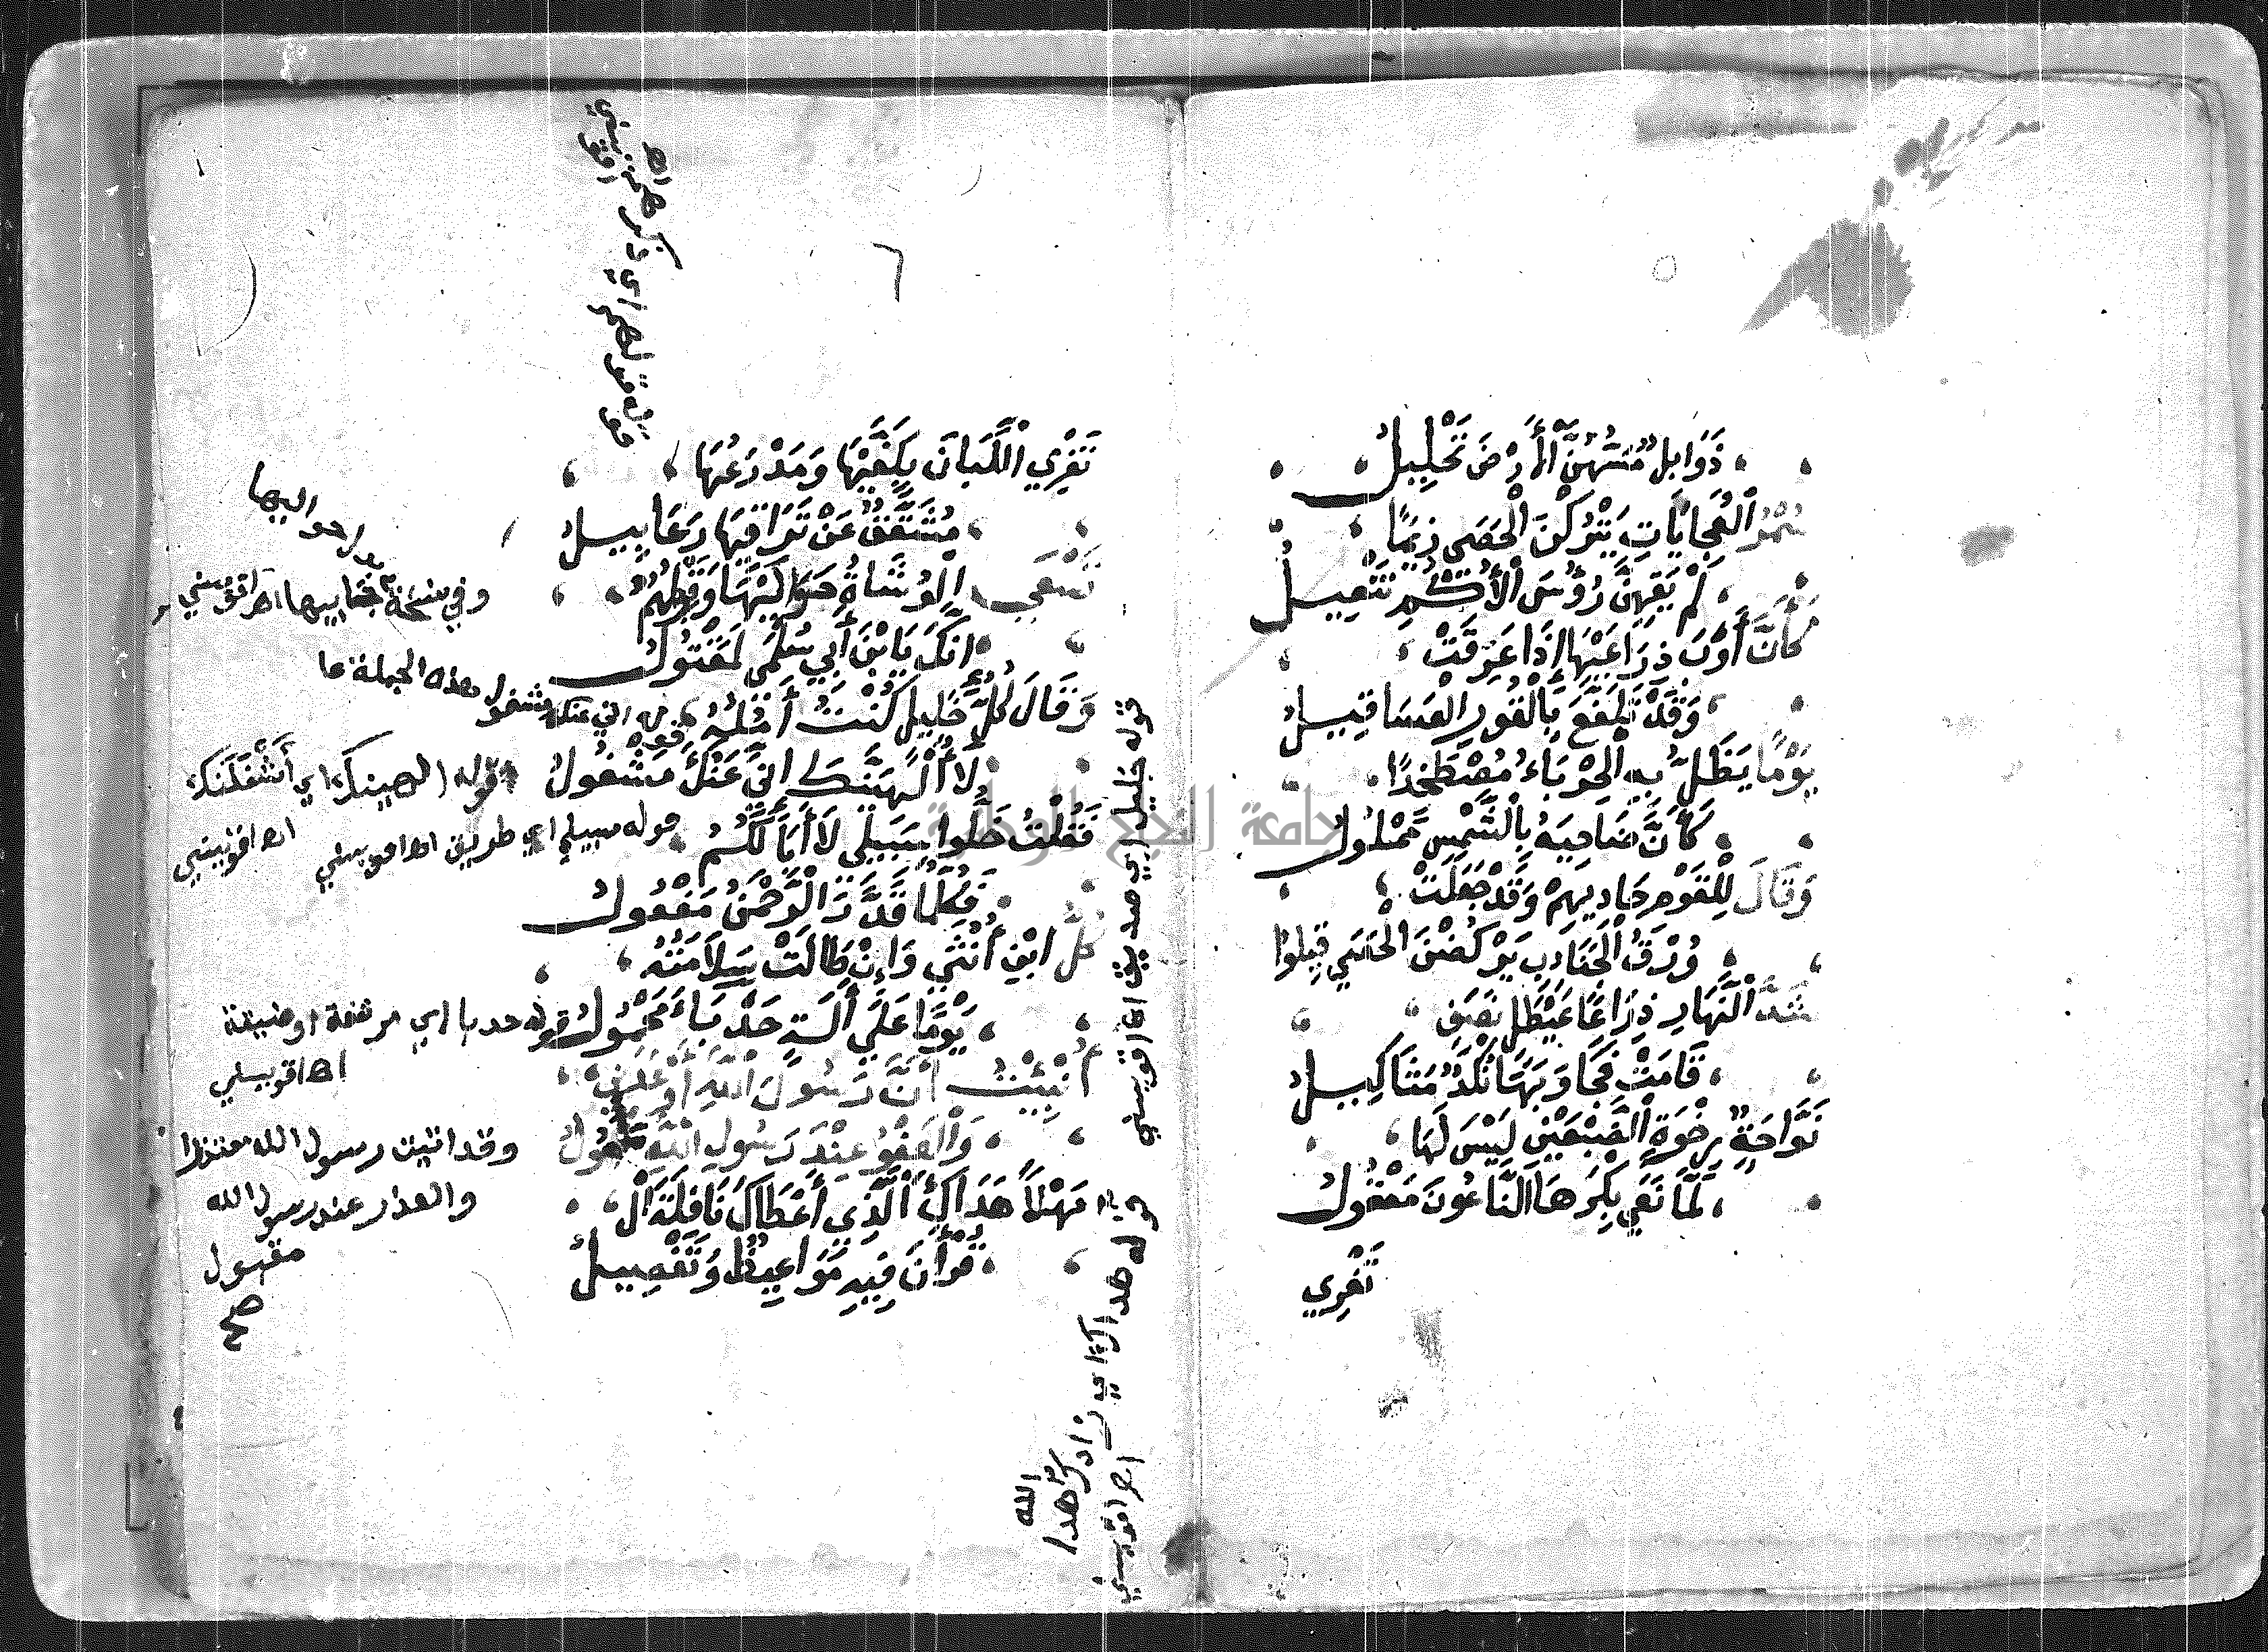 ذَوَابِلٌ مَسُّهُنَّ الْأَرْضَ تَحْلِيلُ
سُمْرُ الْعُجَايَاتِ يَتْرُكْنَ الْحَصَى زِيَمًا
لَمْ يَقِهِنَّ رُؤُسَ الْأُكْمِ تَنْعِيلُ
كَأَنَّ أَوْبَ ذِرَاعَيْهَا إِذَا عَرِقَتْ
وَقَدْ تَلَفَّعَ بِالْقُورِ الْعَسَاقِيلُ
يَوْمًا يَظَلُّ بِهِ الْحِرْبَاءُ مُصْطَخِدًا
كَأَنَّ ضَاحِيَهُ بِالشَّمْسِ مَمْلُولُ
وَقَالَ لِلْقَوْمِ حَادِيهِمْ وَقَدْ جَعَلَتْ
وُرْقُ الْجَنَادِبِ يَرْكُضْنَ الْحَصَى قِيلُوا
شَدَّ النَّهَارِ ذِرَاعَا عَيْطَلٍ نَصَفٍ
قَامَتْ فَجَاوَبَهَا نُكْدٌ مَثَاكِيلُ
نَوَّاحَةٍ رِخْوَةِ الضَّبْعَيْنِ لَيْسَ لَهَا
لَمَّا نَعَى بِكْرَهَا النَّاعُونَ مَعْقُولُ
تَفْرِي
تَفْرِي اللَّبَانَ بِكَفَّيْهَا وَمِدْرَعُهَا
مُشَقَّقٌ عَنْ تَرَاقِيهَا رَعَابِيلُ
تَسْعَى الْوُشَاةُ حَوَالَيْهَا وَقِيلُهُمُ
إِنَّكَ يَا ابْنَ أَبِي سُلْمَى لَمَقْتُولُ
وَقَالَ كُلُّ خَلِيلٍ كُنْتُ آمُلُهُ
لَا أُلْهِيَنَّكَ إِنِّي عَنْكَ مَشْغُولُ
فَقُلْتُ خَلُّوا سَبِيلِي لَا أَبَا لَكُمُ
فَكُلُّ مَا قَدَّرَ الرَّحْمَنُ مَفْعُولُ
كُلُّ ابْنِ أُنْثَى وَإِنْ طَالَتْ سَلَامَتُهُ
يَوْمًا عَلَى آلَةٍ حَدْبَاءَ مَحْمُولُ
أُنْبِئْتُ أَنَّ رَسُولَ اللَّهِ أَوْعَدَنِي
وَالْعَفْوُ عِنْدَ رَسُولِ اللَّهِ مَأْمُولُ
مَهْلًا هَدَاكَ الَّذِي أَعْطَاكَ نَافِلَةَ الْ
قُرْآنِ فِيهِ مَوَاعِيظٌ وَتَفْصِيلُ
وفي نسخة
قوله الهينك اي أَشْغَلَنَّكَ
قوله سبيلي اي طريق اه
قوله حدبا اي مرتفعة او ضيقة
وقد اتيت رسول الله معتذرا
والعذر عند رسول الله
مقبول
صح
قوله خليل اي صديق اه
قوله هداك اي زادك هدا
الله
جامعة النجاح الوطنية